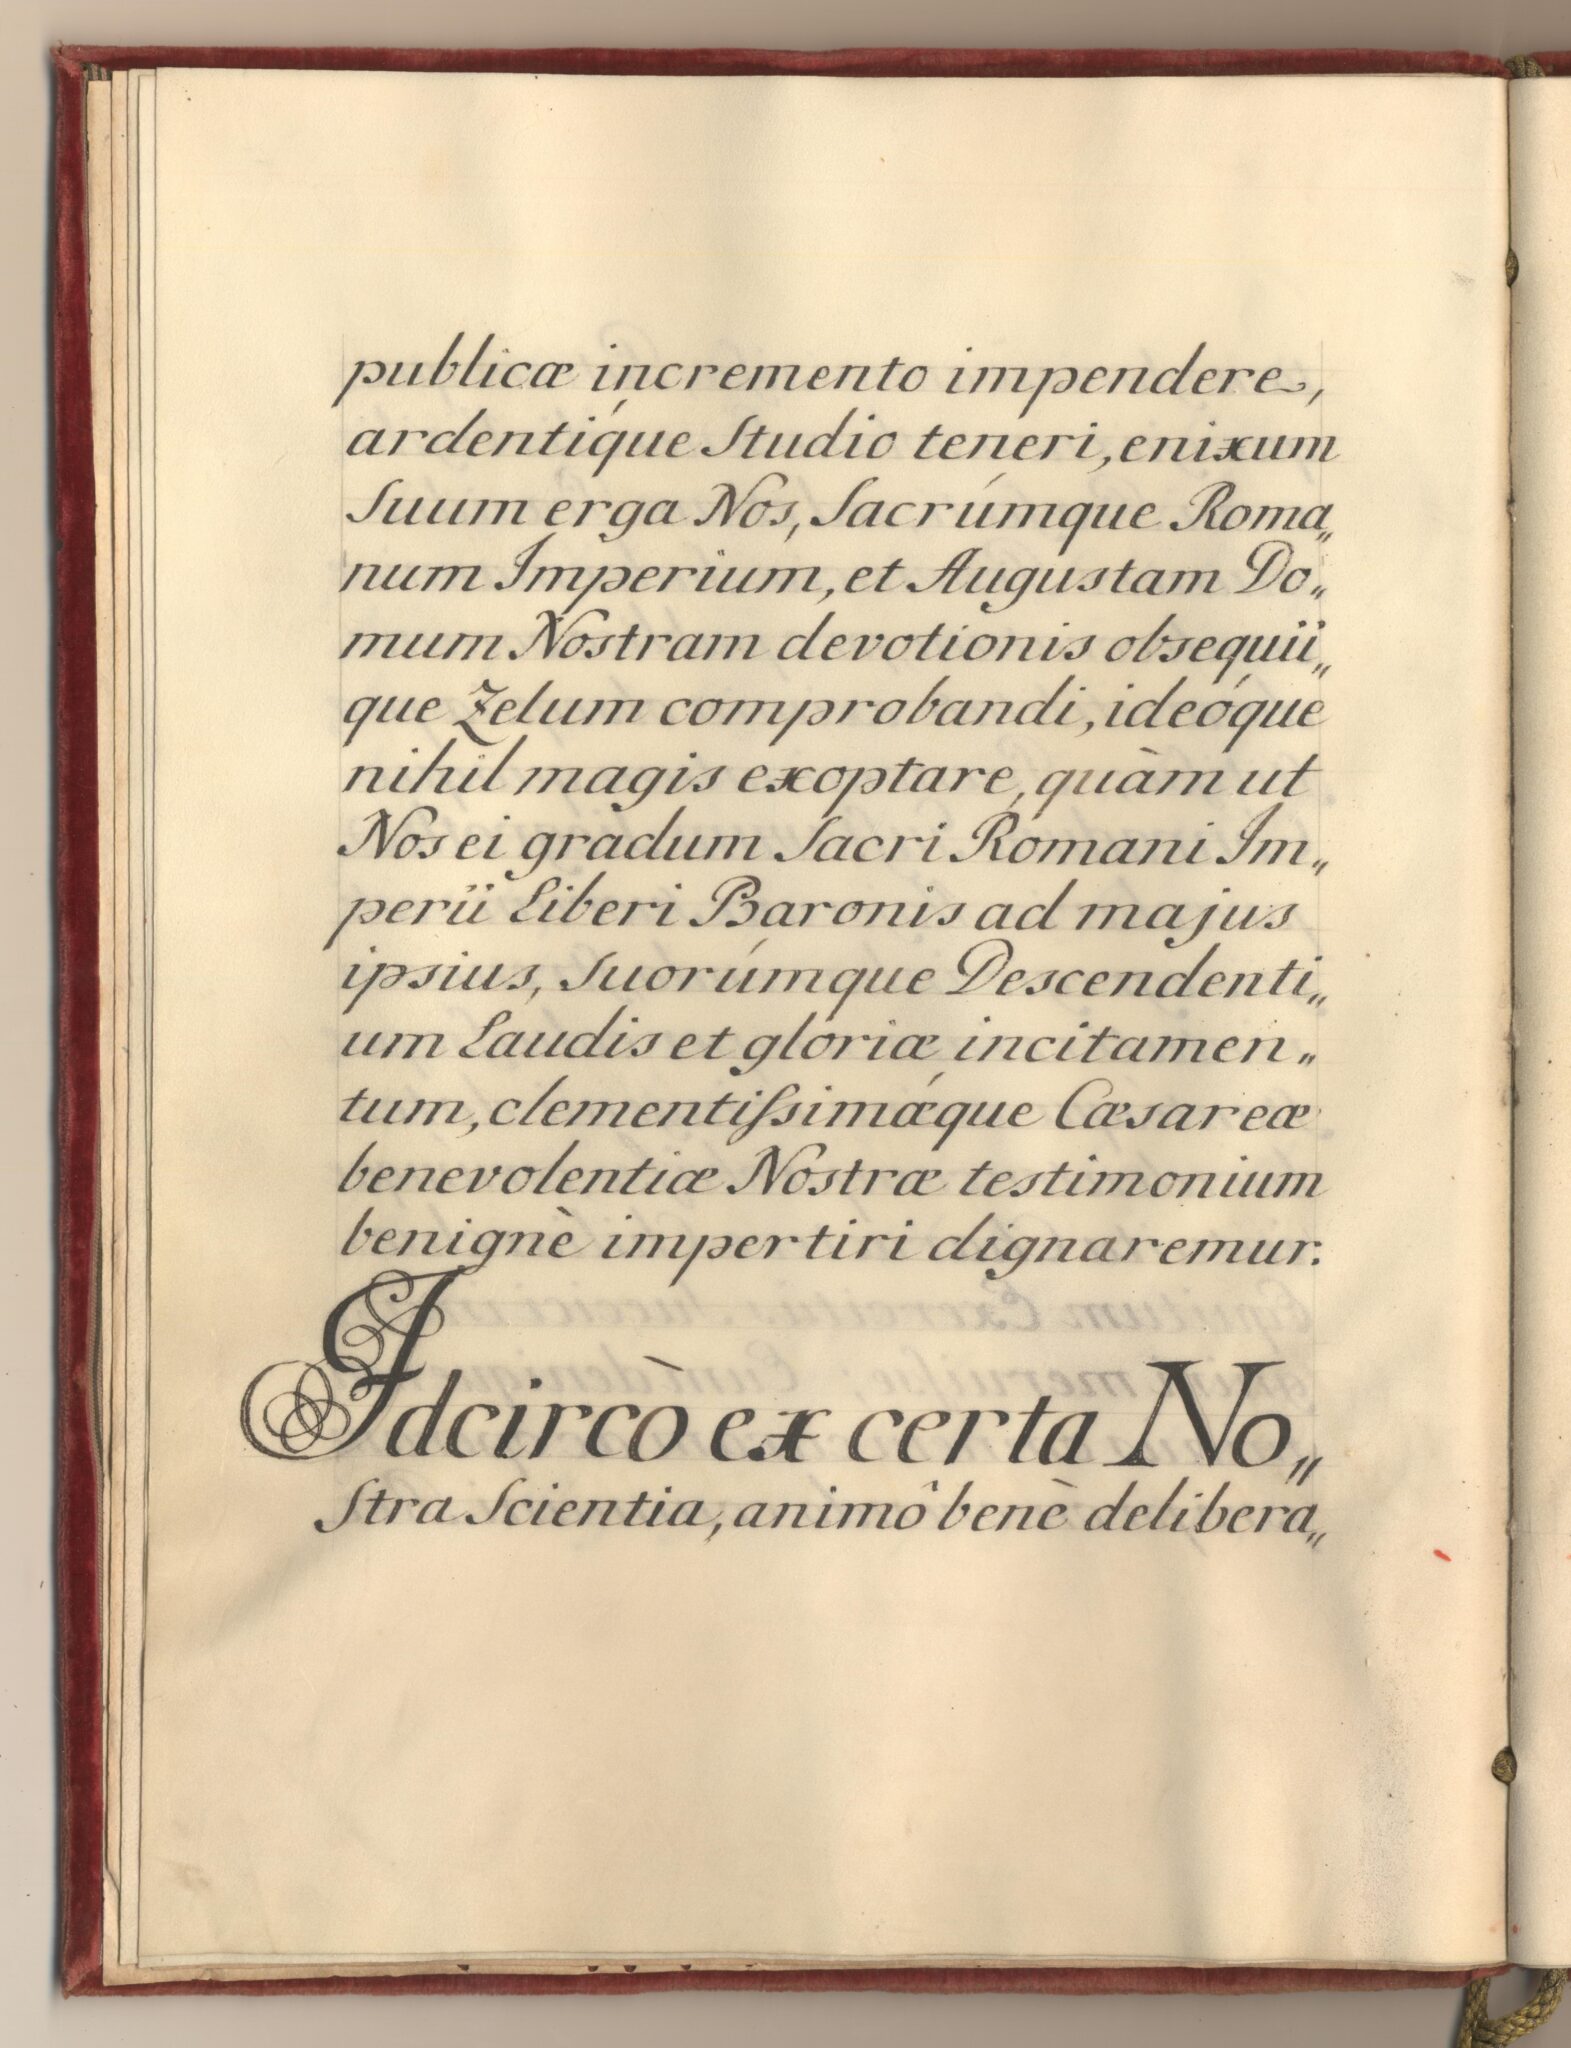 publicæ incremento impendere,
ardentíque Studio teneri, enixum
Suum erga Nos, Sacrúmque Roma„
num Imperium, et Augustam Do„
mum Nostram devotionis obsequii„
que Zelum comprobandi, ideóque
nihil magis exoptare, quàm ut
Nos ei gradum Sacri Romani Im„
perii Liberi Baronis ad majus
ipsius, Suorúmque Descendenti„
um Laudis et gloriæ incitamen„
tum, clementissimǽque Cæsareæ
benevolentiæ Nostræ testimonium
benignè impertiri dignaremur:
Idcircò ex certa No„
Stra Scientia, animô benè delibera„